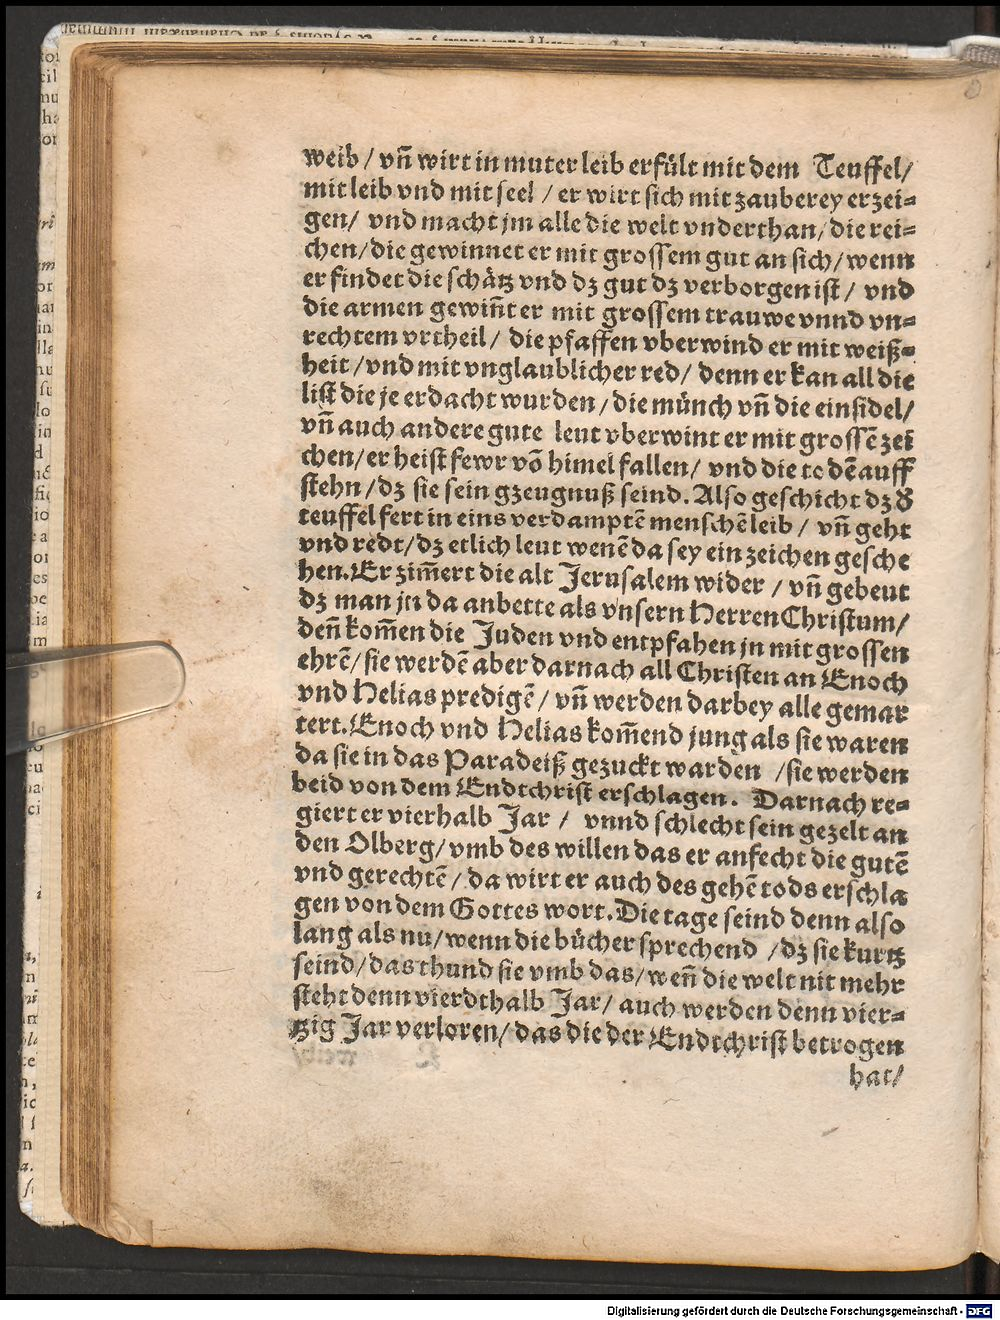 weib / vñ wirt in muter leib erfült mit dem Teuffel/
mit leib vnd mit seel / er wirt sich mit zauberey erzei⸗
gen/ vnd macht jm alle die welt vnderthan/ die rei⸗
chen/ die gewinnet er mit grossem gut an sich/ wenn
er findet die schätz vnd dz gut dz verborgen ist / vnd
die armen gewiñt er mit grossem trauwe vnnd vn⸗
rechtem vrtheil/ die pfaffen vberwind er mit weiß⸗
heit /vnd mit vnglaublicher red/ denn er kan all die
list die je erdacht wurden /die münch vñ die einsidel/
vñ auch andere gute leut vberwint er mit grossẽ zei
chen/ er heist fewr võ himel fallen/ vnd die todẽ auff
stehn /dz sie sein gzeugnuß seind. Also geschicht dz ď
teuffel fert in eins verdamptẽ menschẽ leib / vñ geht
vnd redt/ dz etlich leut wenẽ da sey ein zeichen gesche
hen. Er zim̃ert die alt Jerusalem wider / vñ gebeut
dz man jn da anbette als vnsern Herren Christum/
deñ kom̃en die Juden vnd entpfahen jn mit grossen
ehrẽ/ sie werdẽ aber darnach all Christen an Enoch
vnd Helias predigẽ/ vñ werden darbey alle gemar
tert. Enoch vnd Helias kom̃end jung als sie waren
da sie in das Paradeiß gezuckt warden /sie werden
beid von dem Endtchrist erschlagen. Darnach re⸗
giert er vierhalb Jar / vnnd schlecht sein gezelt an
den Olberg/ vmb des willen das er anfecht die gutẽ
vnd gerechtẽ/ da wirt er auch des gehẽ tods erschla
gen von dem Gottes wort. Die tage seind denn also
lang als nu/ wenn die bücher sprechend /dz sie kurtz
seind/ das thund sie vmb das/ weñ die welt nit mehr
steht denn vierdthalb Jar/ auch werden denn vier⸗
tzig Jar verloren/ das die der Endtchrist betrogen
hat/
Digitalisierung gefördert durch die Deutsche Forschungsgemeinschaft - DFG